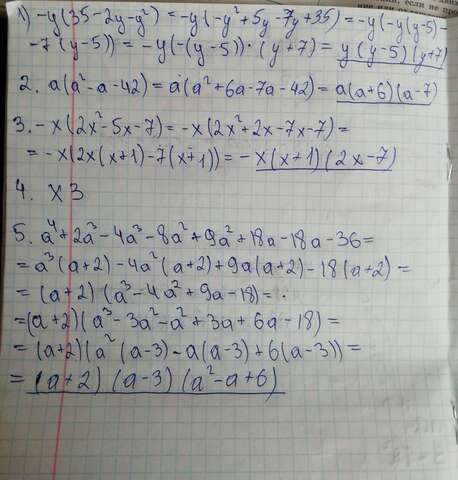 1) -y(35-2y-y²) = -y(-y²+5y-7y+35) = -y(-y(y-5)-
-7(y-5)) = -y(-(y-5))·(y+7) = y(y-5)(y+7)
2. a(a²-a-42) = a(a²+6a-7a-42) = a(a+6)(a-7)
3. -x(2x²-5x-7) = -x(2x²+2x-7x-7) =
= -x(2x(x+1)-7(x+1)) = -x(x+1)(2x-7)
4. х3
5. a⁴+2a³-4a³-8a²+9a²+18a-18a-36=
= a³(a+2)-4a²(a+2)+9a(a+2)-18(a+2)=
= (a+2)(a³-4a²+9a-18)=
=(a+2)(a³-3a²-a²+3a+6a-18)=
= (a+2)(a²(a-3)-a(a-3)+6(a-3))=
= (a+2)(a-3)(a²-a+6)